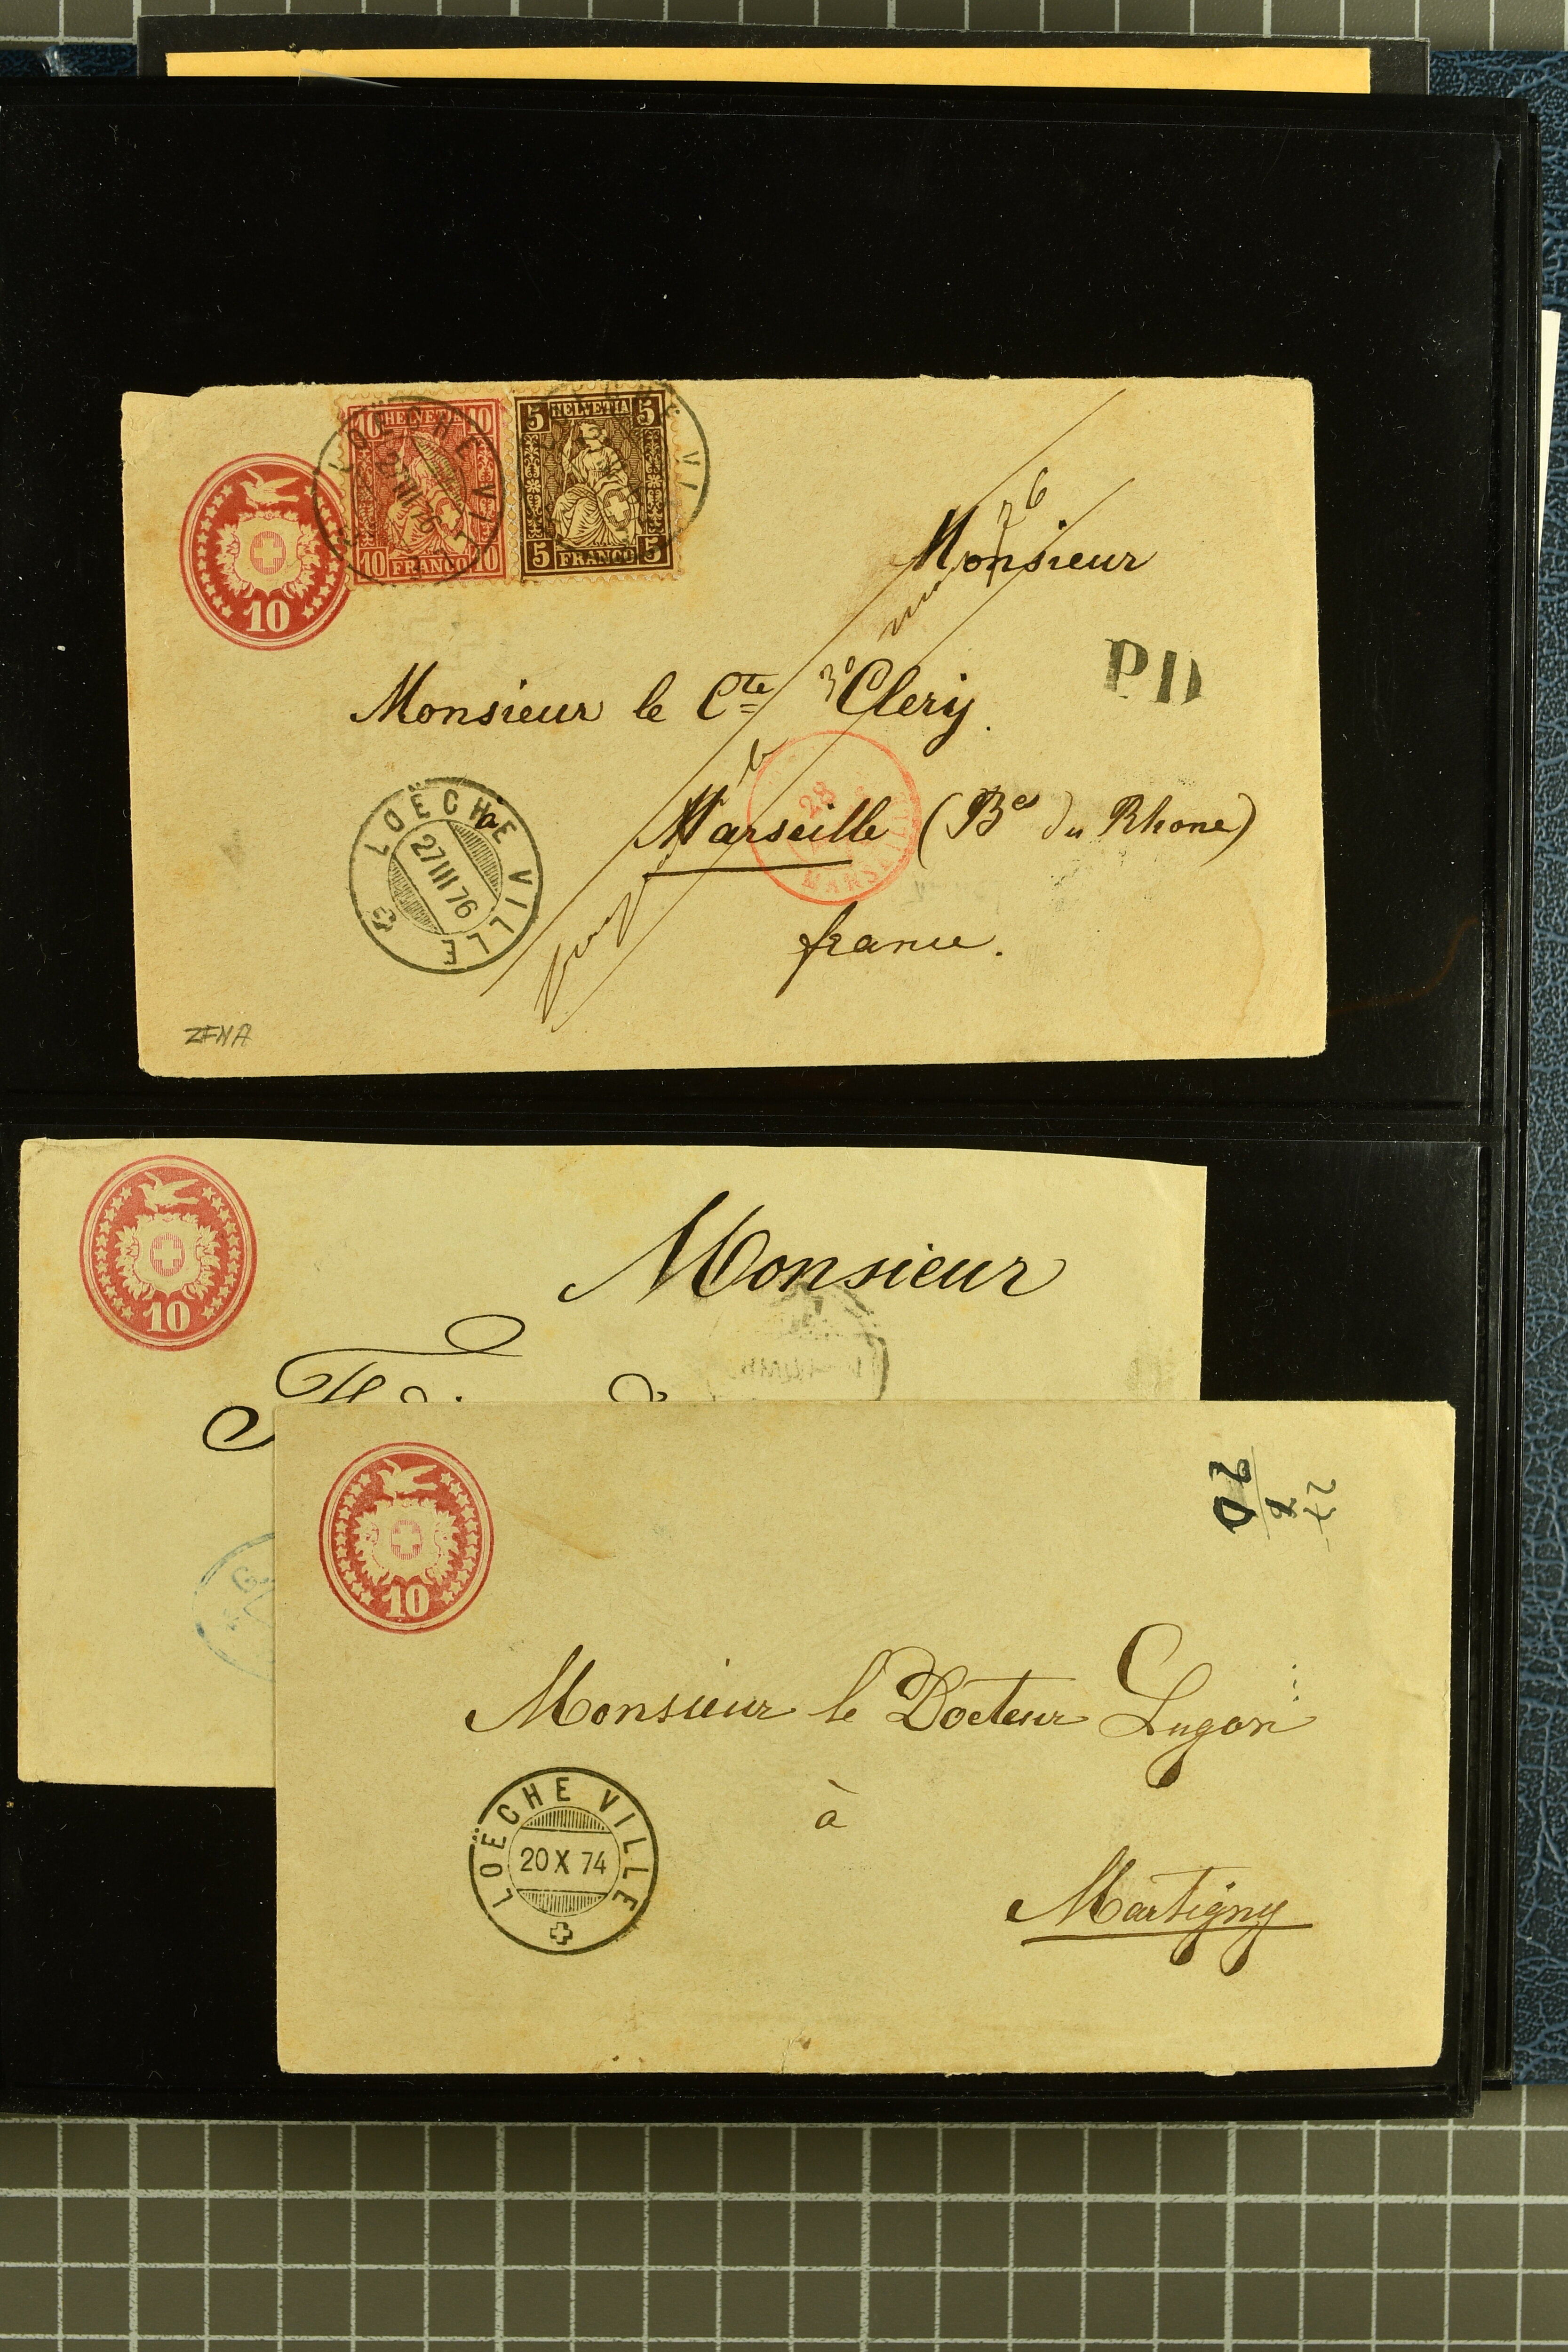 10 HELVETIA 10
10 FRANCO 10
5 HELVETIA 5
5 FRANCO 5
LOËCHE VILLE
27 III 76
10
76
Monsieur
PD
Monsieur le Cte Clery.
à
Marseille (Bes du Rhone)
france.
28
MARSEILLE
LOËCHE VILLE
27 III 76
ZENA
10
Monsieur
10
20
X
Monsieur le Docteur Lugon
à
Martigny
LOËCHE VILLE
20 X 74